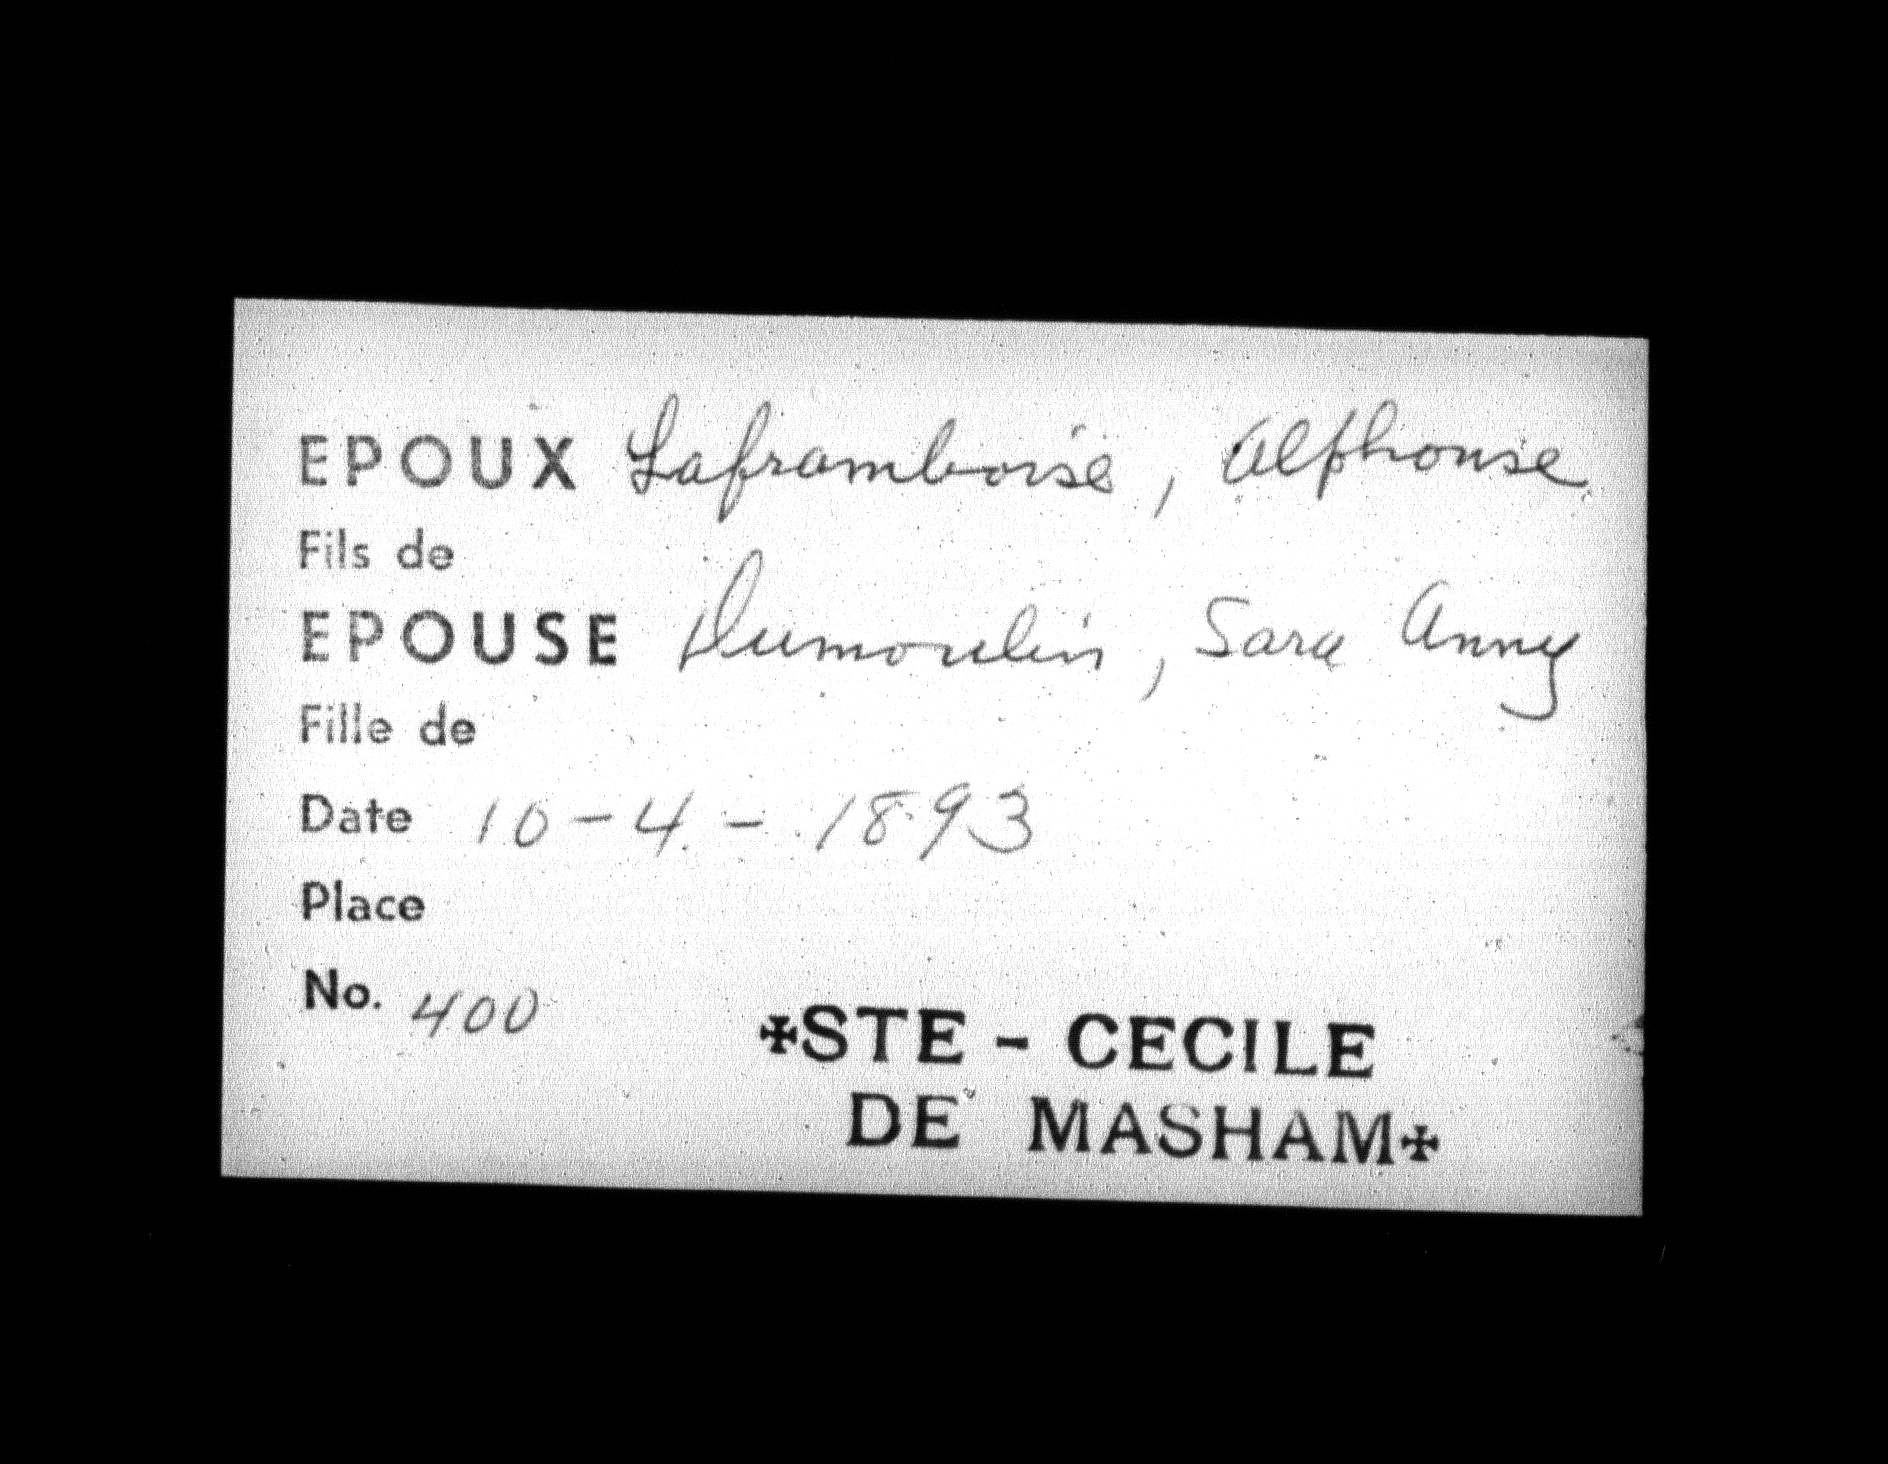 EPOUX Laframboise, Alphonse
Fils de
EPOUSE Dumoulin, Sara Anny
Fille de
Date 10-4-1893
Place
No. 400
✠STE - CECILE
DE MASHAM✠